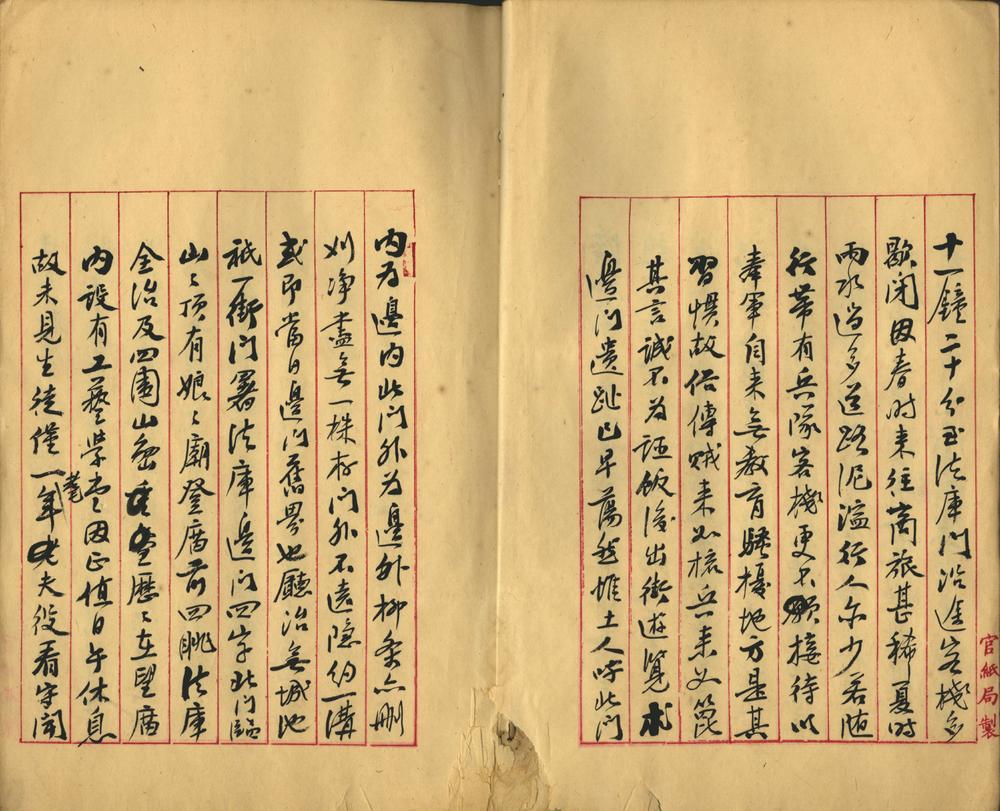 十一鐘二十分至法庫門沿途客棧多
歇閉因春时来往商旅甚稀夏时
雨水過多道路泥濫行人亦少若随
行帶有兵隊客棧更不願接待以
奉軍自来無教育騷擾地方是其
習慣故俗傳賊来如梳兵来如篦
其言誠不為誣飯後出街遊覽
邊门遺趾已早蕩然惟土人呼此门
内为邊内此门外为邊外柳条亦刪
刈净盡無一株存门外不遠隐约一溝
或即當日邊门舊界也廳治無城池
祇一衙门署法庫邊门四字此门臨
山山頂有娘々廟登廟前四眺法庫
全治及四圍山巒歷々在望廟
内設有工藝学堂因正值日午休息
故未見生徒僅一老夫役看守聞
官紙局製